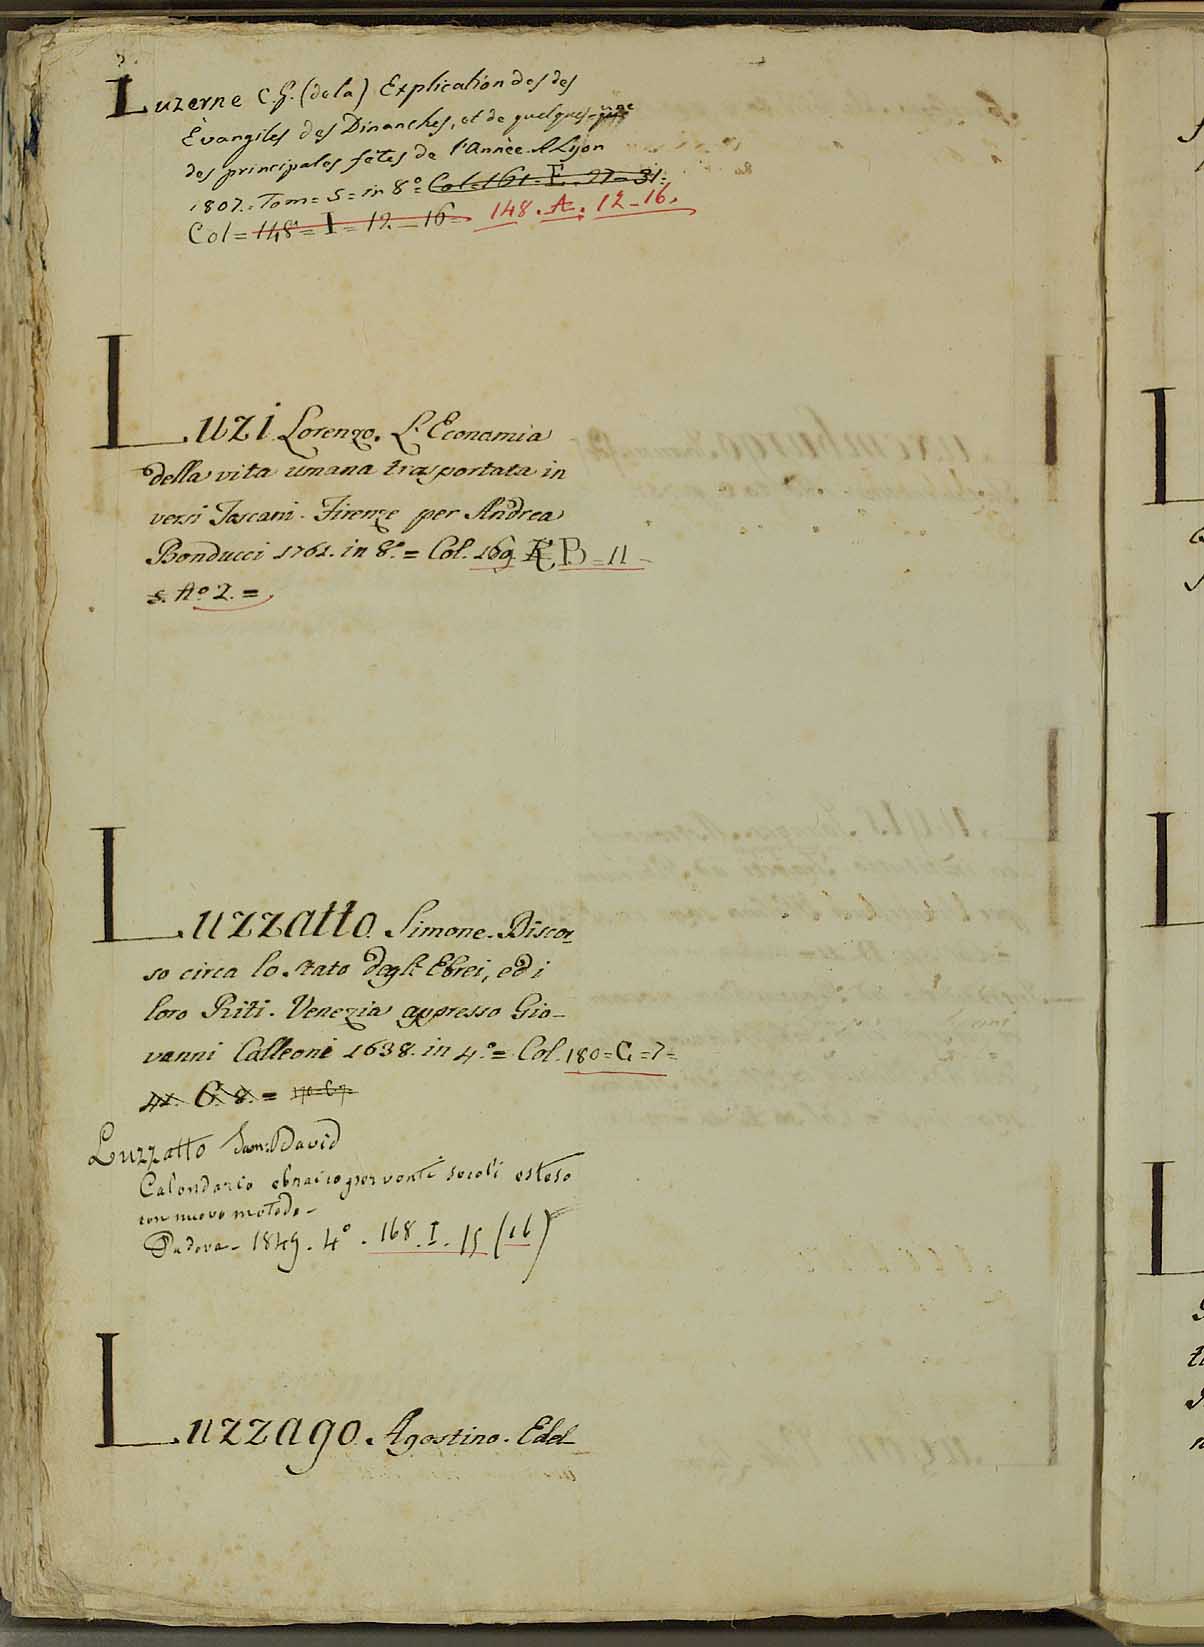 Luzerne C. G. (dela) Explication des des
Èvangiles des Dimanches, et de quelques-une
des principales fêtes de l'Annèe. A Lyon
1807. Tom = 5 = in 8° = Col = 161. E. 27 = 31.
Col = 148 = I = 12. - 16 = 148. A. 12 - 16.
Luzi Lorenzo. L'Economia
della vita umana trasportata in
versi Toscani. Firenze per Andrea
Bonducci 1761. in 8.° = Col. 169 B - 11 -
s. A° 2. =
Luzzatto Simone. Discor-
so circa lo stato degli Ebrei, ed i
loro Riti. Venezia appresso Gio-
vanni Calleoni 1638. in 4.° = Col. 180 = C. = 7 =
42. C. 8. = 170 = C 7 =
Luzzatto Sam: David
Calendario ebraico per venti secoli esteso
con nuovo metodo -
Padova - 1849. 4° - 168. I. 15 (16)
Luzzago Agostino. Edel-